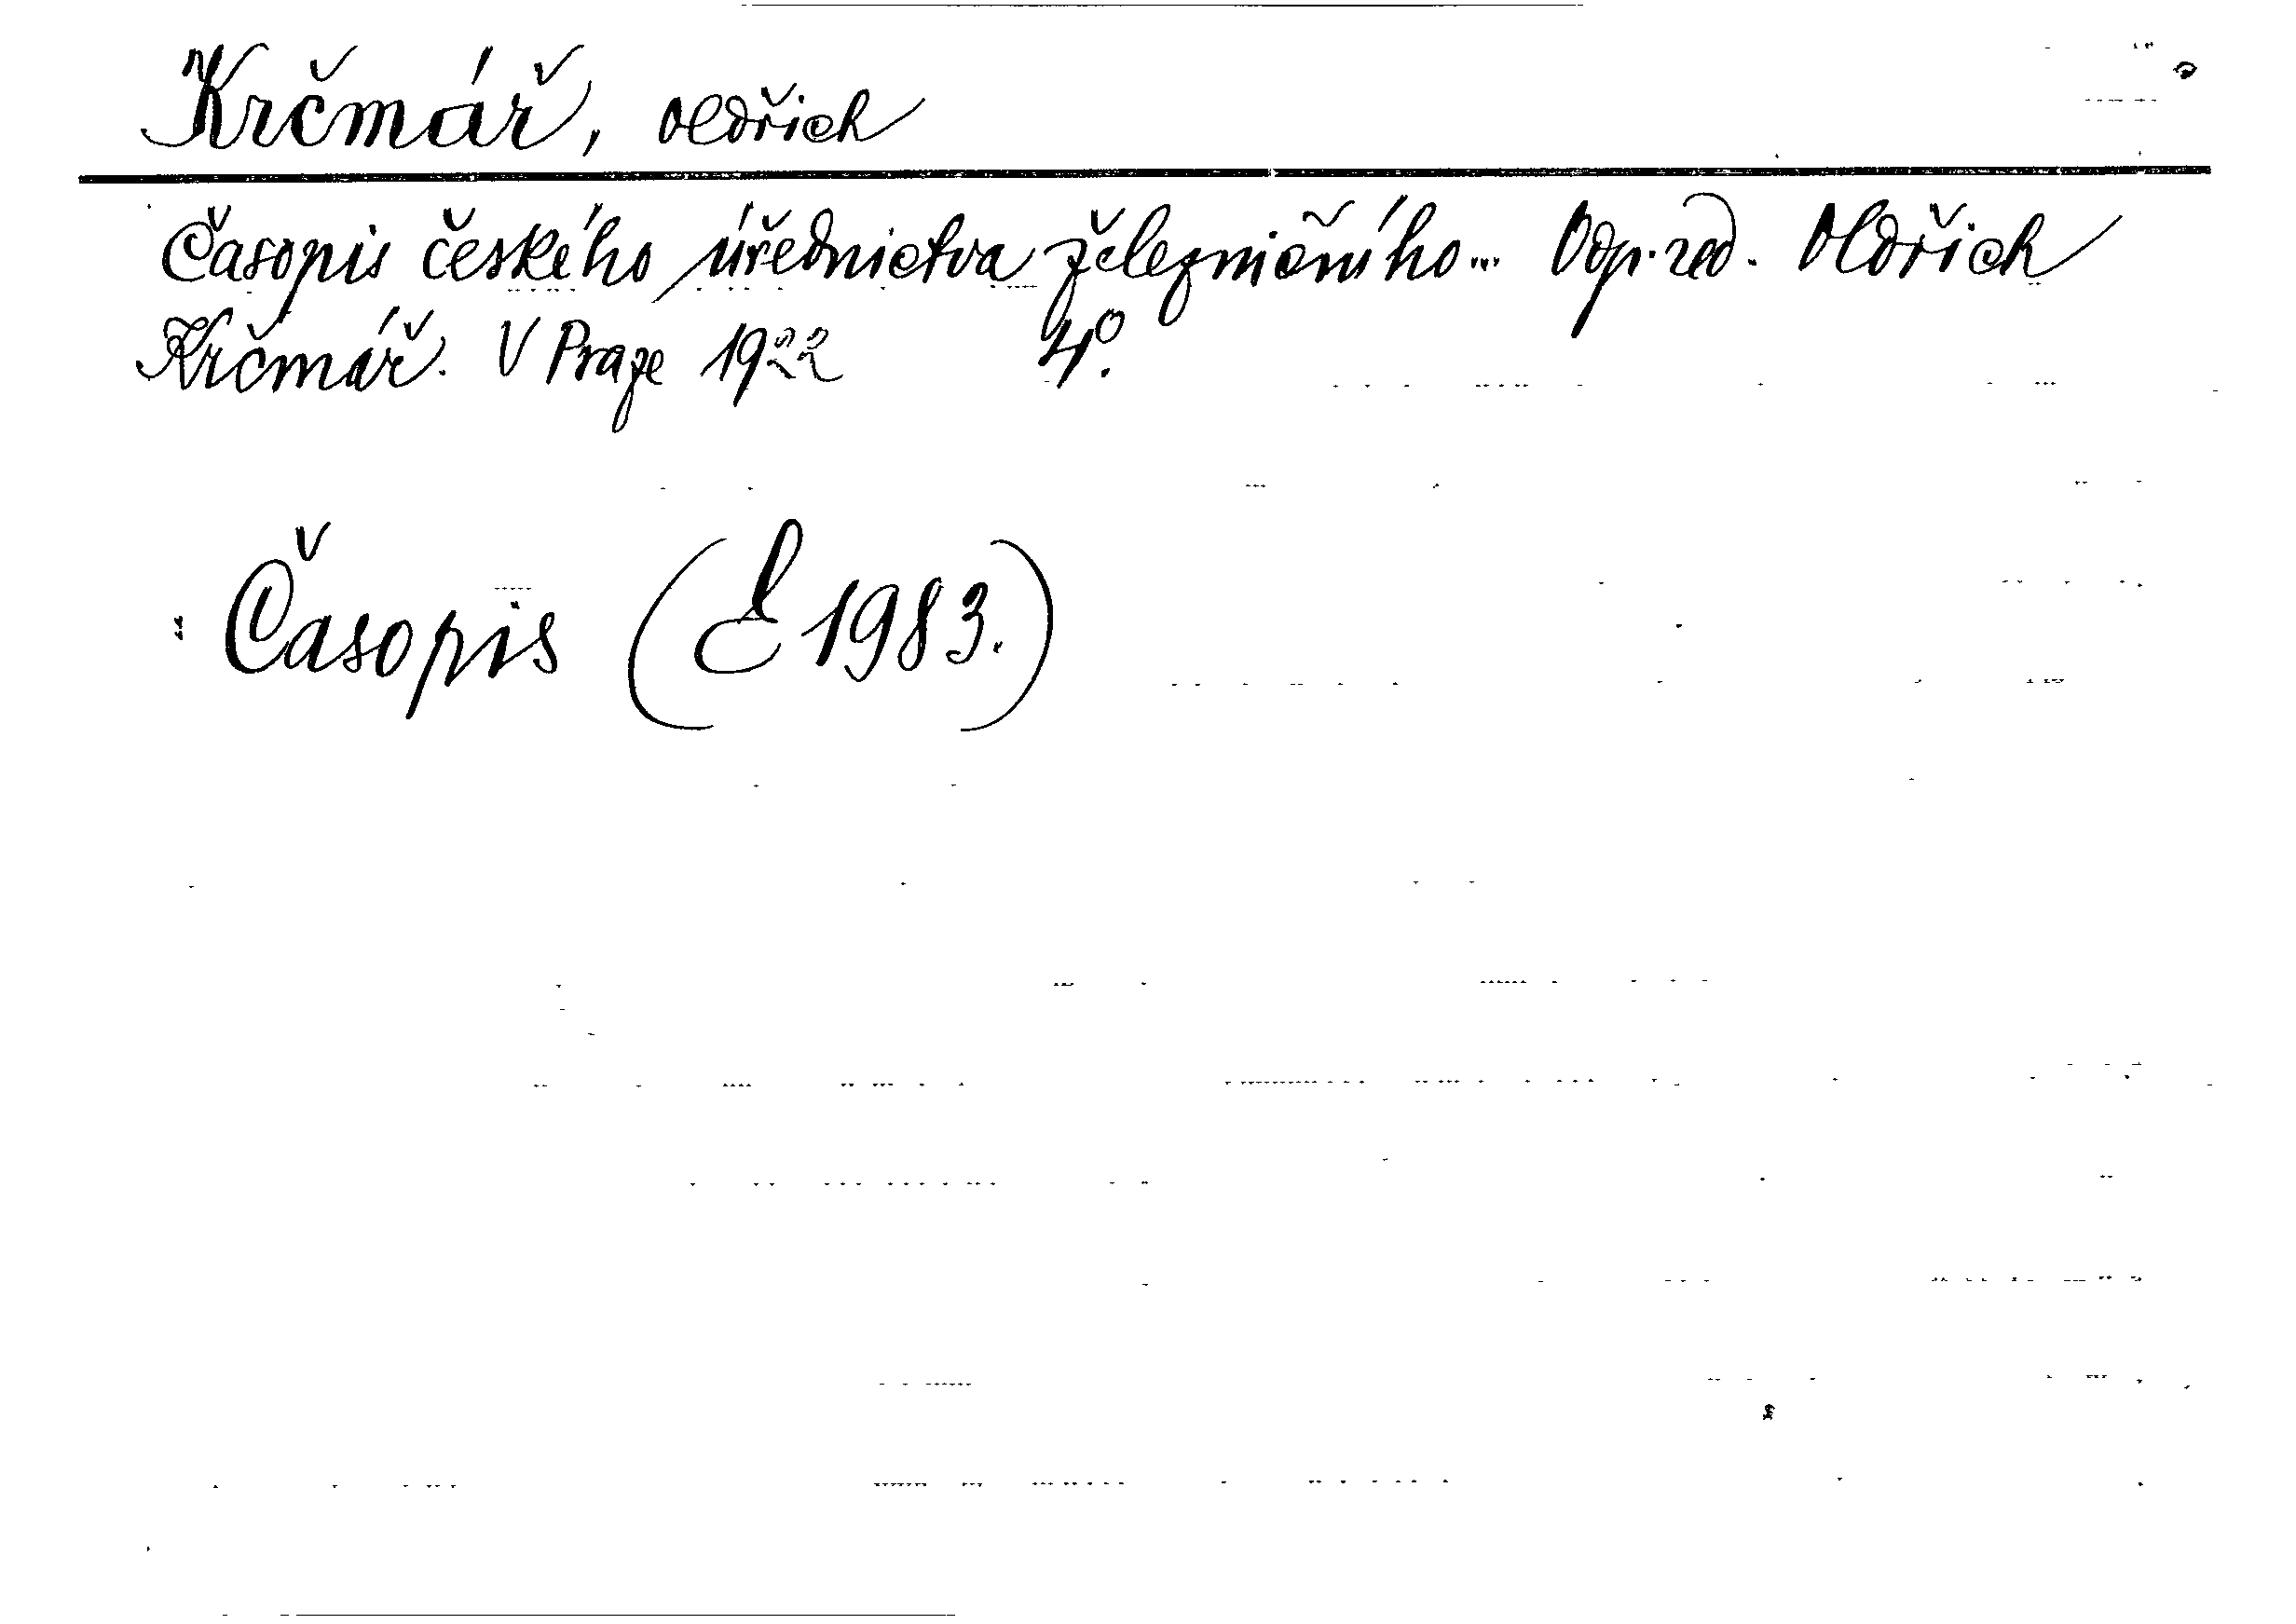 Krčmář, Oldřich
Časopis českého úřednictva železničního... Odp. red. Oldřich
Krčmář. V Praze 1922 4°.
Časopis (E 1983.)